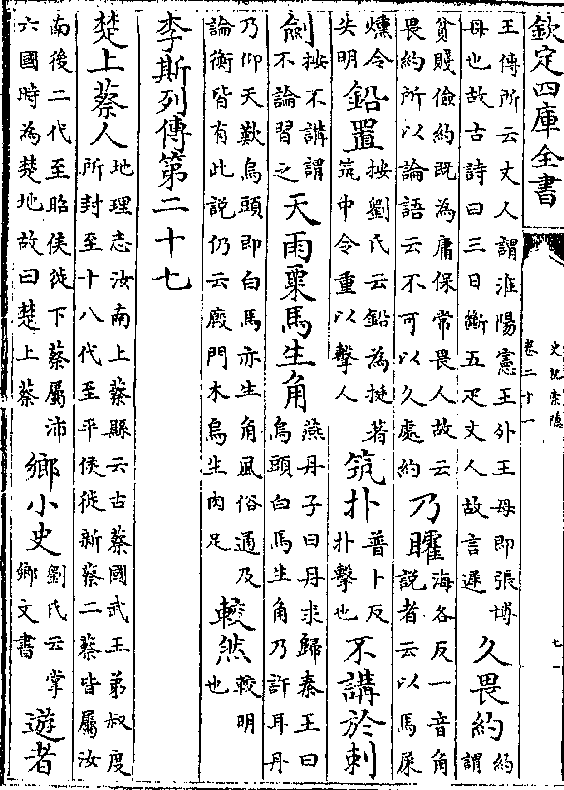 欽定四庫全書
史記索隱
卷二十一
七
王傳所云丈人謂淮陽憲王外王母即張博
母也故古詩曰三日斷五疋丈人故言遲
久畏約
約
謂
貧賤儉約既為庸保常畏人故云
畏約所以論語云不可以久處約
乃矐
海各反一音角
説者云以馬屎
燻令
失明
鉛置
按劉氏云鉛為挺著
筑中令重以擊人
筑扑
普卜反
扑擊也
不講於刺
劍
按不講謂
不論習之
天雨粟馬生角
燕丹子曰丹求歸秦王曰
烏頭白馬生角乃許耳丹
乃仰天歎烏頭即白馬亦生角風俗通及
論衡皆有此説仍云廐門木烏生肉足
較然
較明
也
李斯列傳第二十七
楚上蔡人
地理志汝南上蔡縣云古蔡國武王弟叔度
所封至十八代至平侯徙新蔡二蔡皆屬汝
南後二代至昭侯徙下蔡屬沛
六國時為楚地故曰楚上蔡
鄉小史
劉氏云掌
鄉文書
遊者